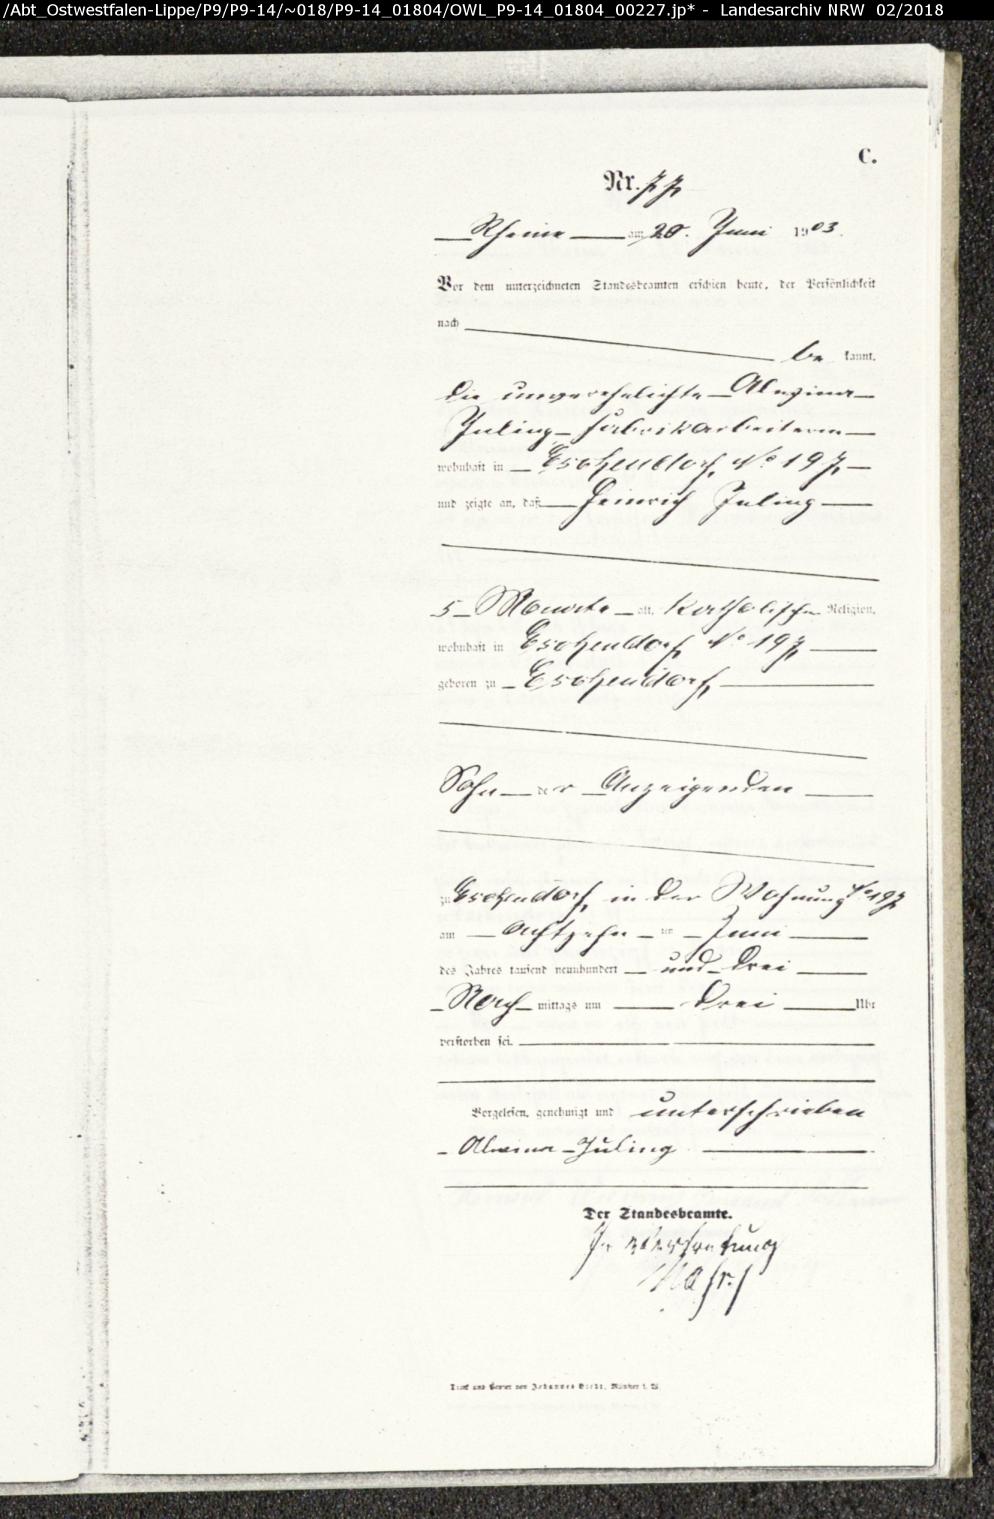 /Abt_Ostwestfalen-Lippe/P9/P9-14/~018/P9-14_01804/OWL_P9-14_01804_00227.jp* - Landesarchiv NRW 02/2018
C.
Nr. 77
Rheine am 20. Juni 1903.
Vor dem unterzeichneten Standesbeamten erschien heute, der Persönlichkeit
nach
be kannt,
die unverehelichte Alwina
Juling Fabrikarbeiterin
wohnhaft in Eschendorf No 197
und zeigte an, daß Heinrich Juling
5 Monate alt, katholischer Religion,
wohnhaft in Eschendorf No 197
geboren zu Eschendorf
Sohn der Anzeigenden
zu Eschendorf, in der Wohnung No 197
am achtzehn ten Juni
des Jahres tausend neunhundert und drei
Nach mittags um drei Uhr
verstorben sei.
Vorgelesen, genehmigt und unterschrieben
Alwina Juling
Der Standesbeamte.
In Vertretung
Druck und Verlag von Johannes Bredt, Münster i. W.